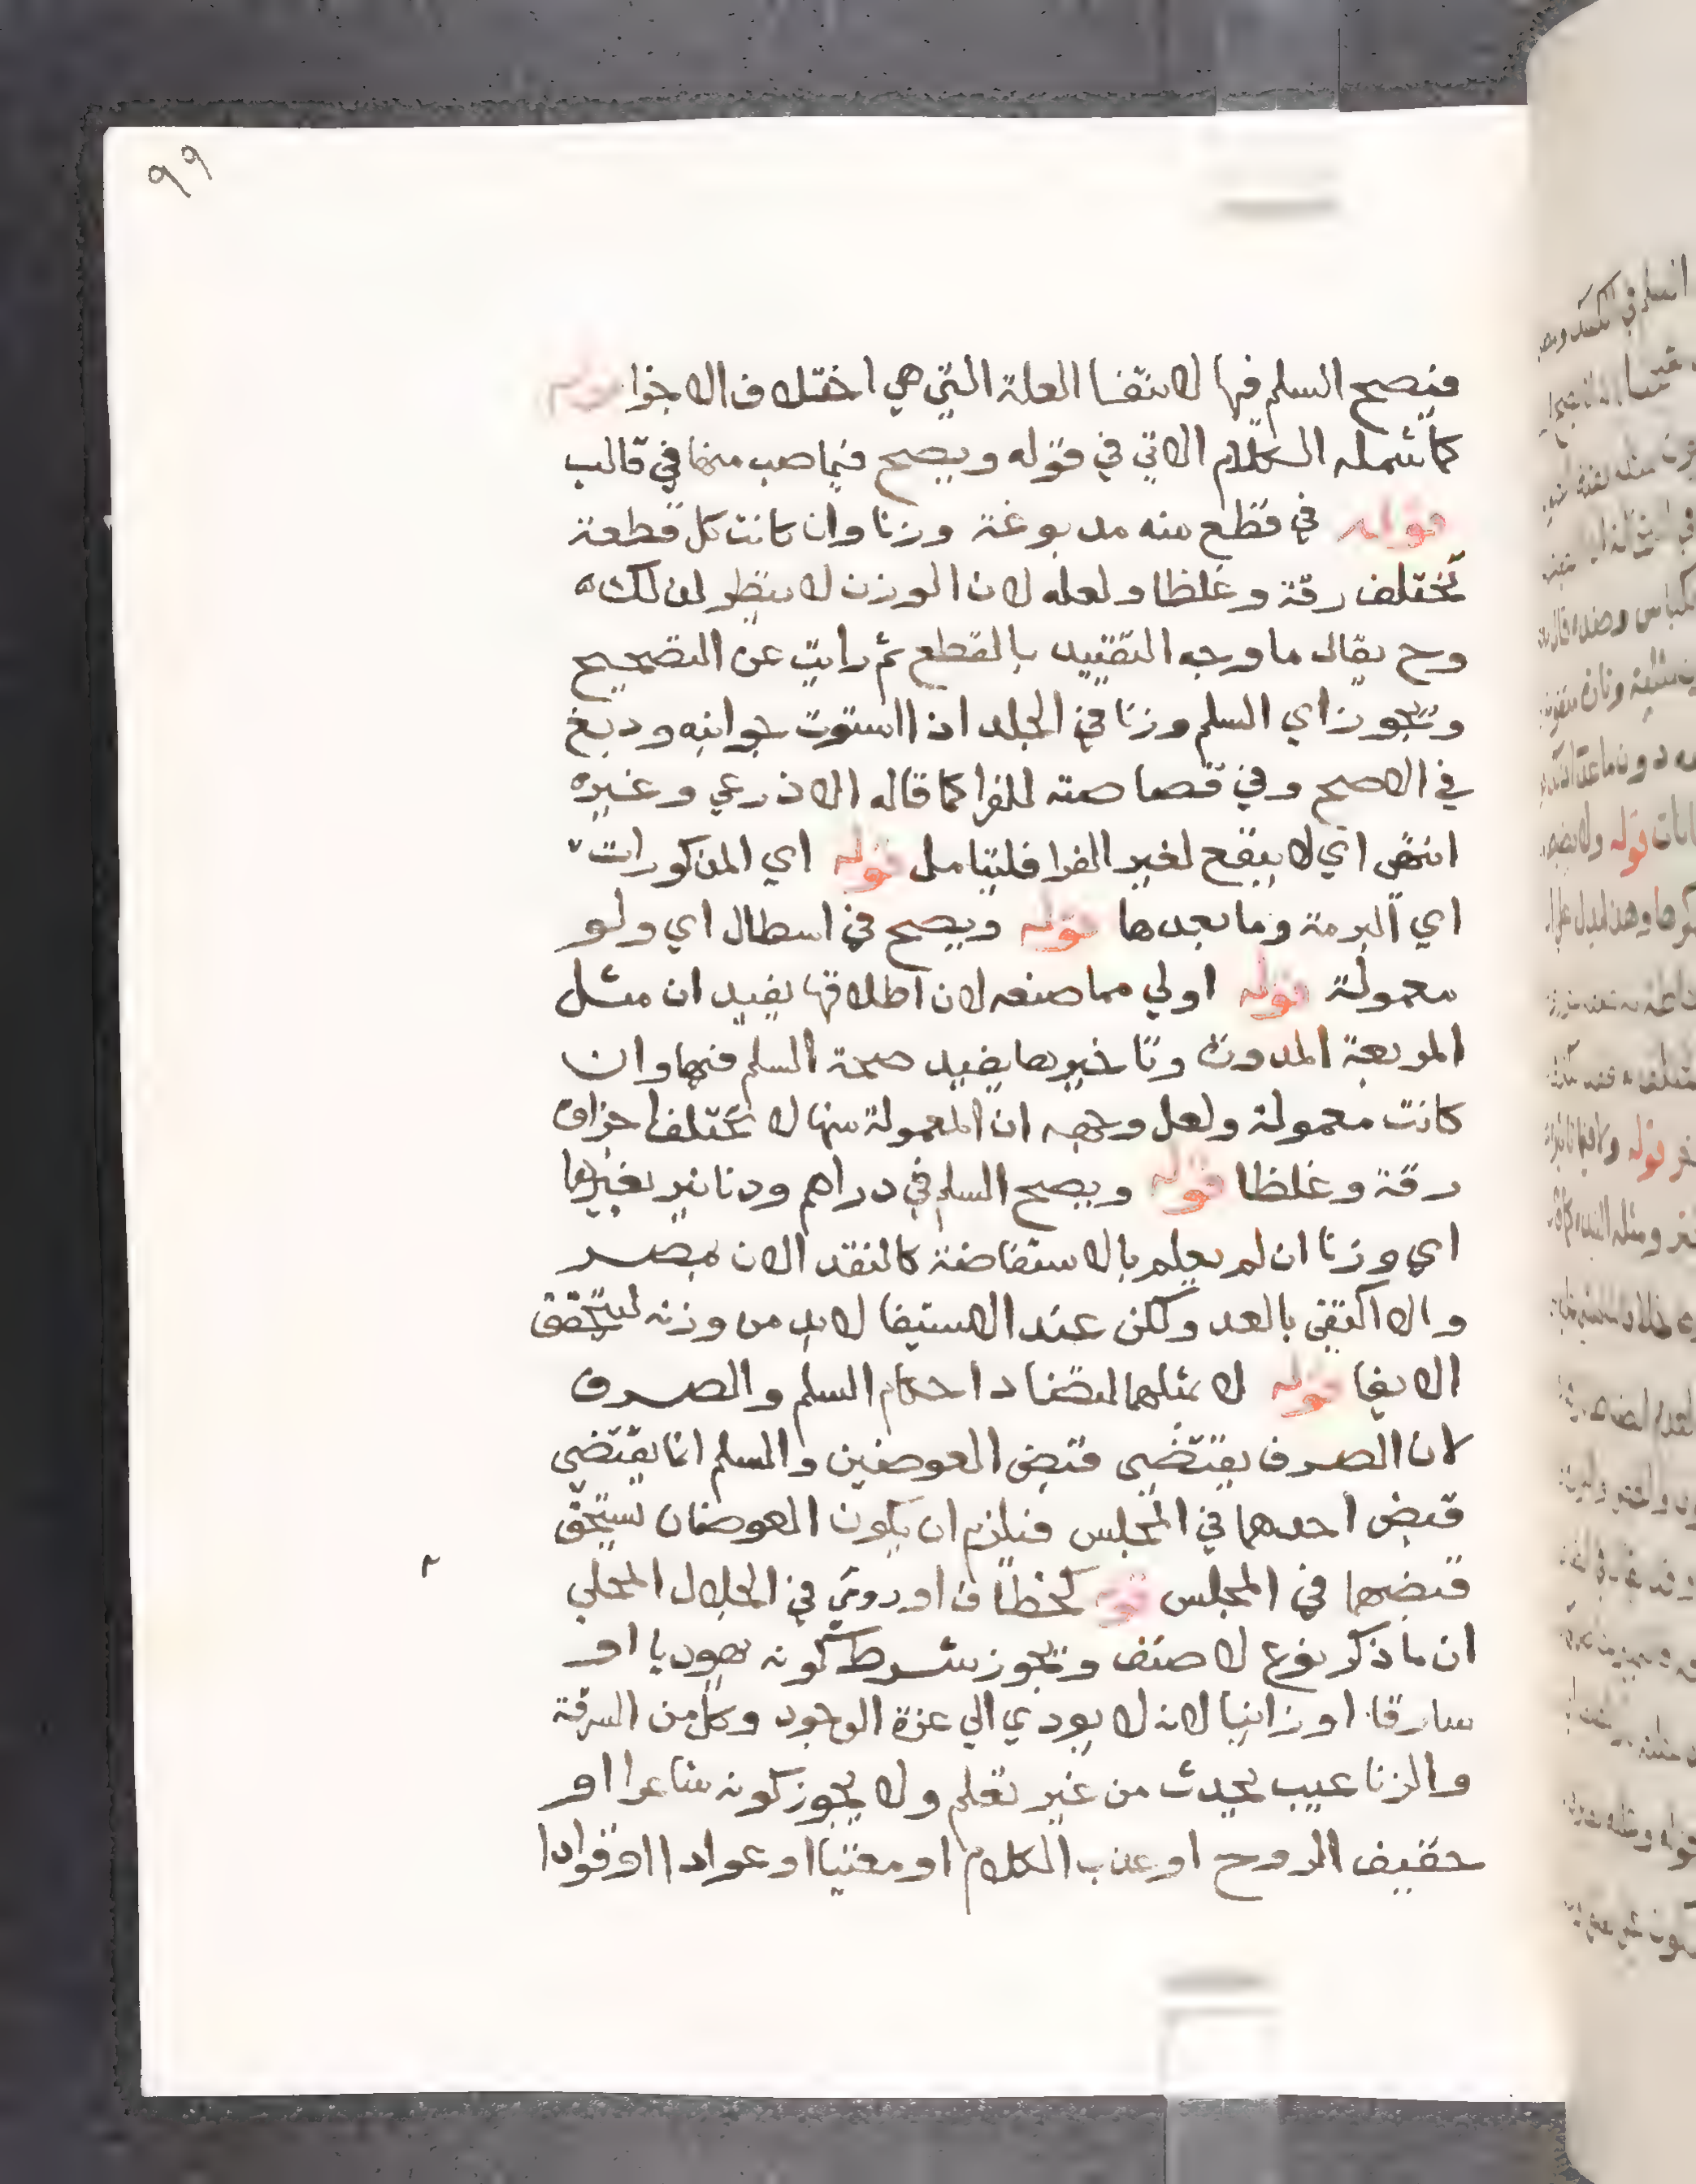 ٩٩
فيصح السلم فيها لانتفا العلة التي هي اختلاف الاجزا قوله
كما شمله الكلام الاتي في قوله ويصح فيما صب منها في قالب
قوله في قطع منه مدبوغة وزنا وان كانت كل قطعة
تختلف رقة وغلظا ولعله لان الوزن لا ينظر لذلك
وح يقال ما وجه التقييد بالقطع ثم رايت عن التصحيح
ويجوز اي السلم وزنا في الجلد اذا استوت جوانبه ودبغ
في الاصح وفي قصاصته للفرا كما قاله الاذرعي وغيره
انتهى اي لا ينفع لغير الفرا فليتامل قوله اي المذكورات
اي البرمة وما بعدها قوله ويصح في اسطال اي ولو
معمولة قوله اولي مما صنعه لان اطلاقها يفيد ان مثل
المربعة المدورة وتاخيرها يفيد صحة السلم فيها وان
كانت معمولة ولعل وجهه ان المعمولة منها لا تختلف اجزاه
رقة وغلظا قوله ويصح السلم في دراهم ودنانير بغيرها
اي وزنا ان لم يعلم بالاستفاضة كالنقد الان بمصر
والا اكتفي بالعد ولكن عند الاستيفا لابد من وزنه ليتحقق
الايفا قوله لا بمثلهما لتضاد احكام السلم والصرف
لان الصرف يقتضي قبض العوضين والسلم انما يقتضي
قبض احدهما في المجلس فيلزم ان يكون العوضان يستحق
قبضهما في المجلس قوله كخطاف اوردوي في الجلال المحلي
ان ما ذكر نوع لا صنف ويجوز شرط كونه يهوديا او
سارقا او زانيا لانه لا يودي الي عزة الوجود وكل من السرقة
والزنا عيب يحدث من غير تعلم ولا يجوز كونه شاعرا او
خفيف الروح او عذب الكلام او مغنيا او عوادا او قوادا